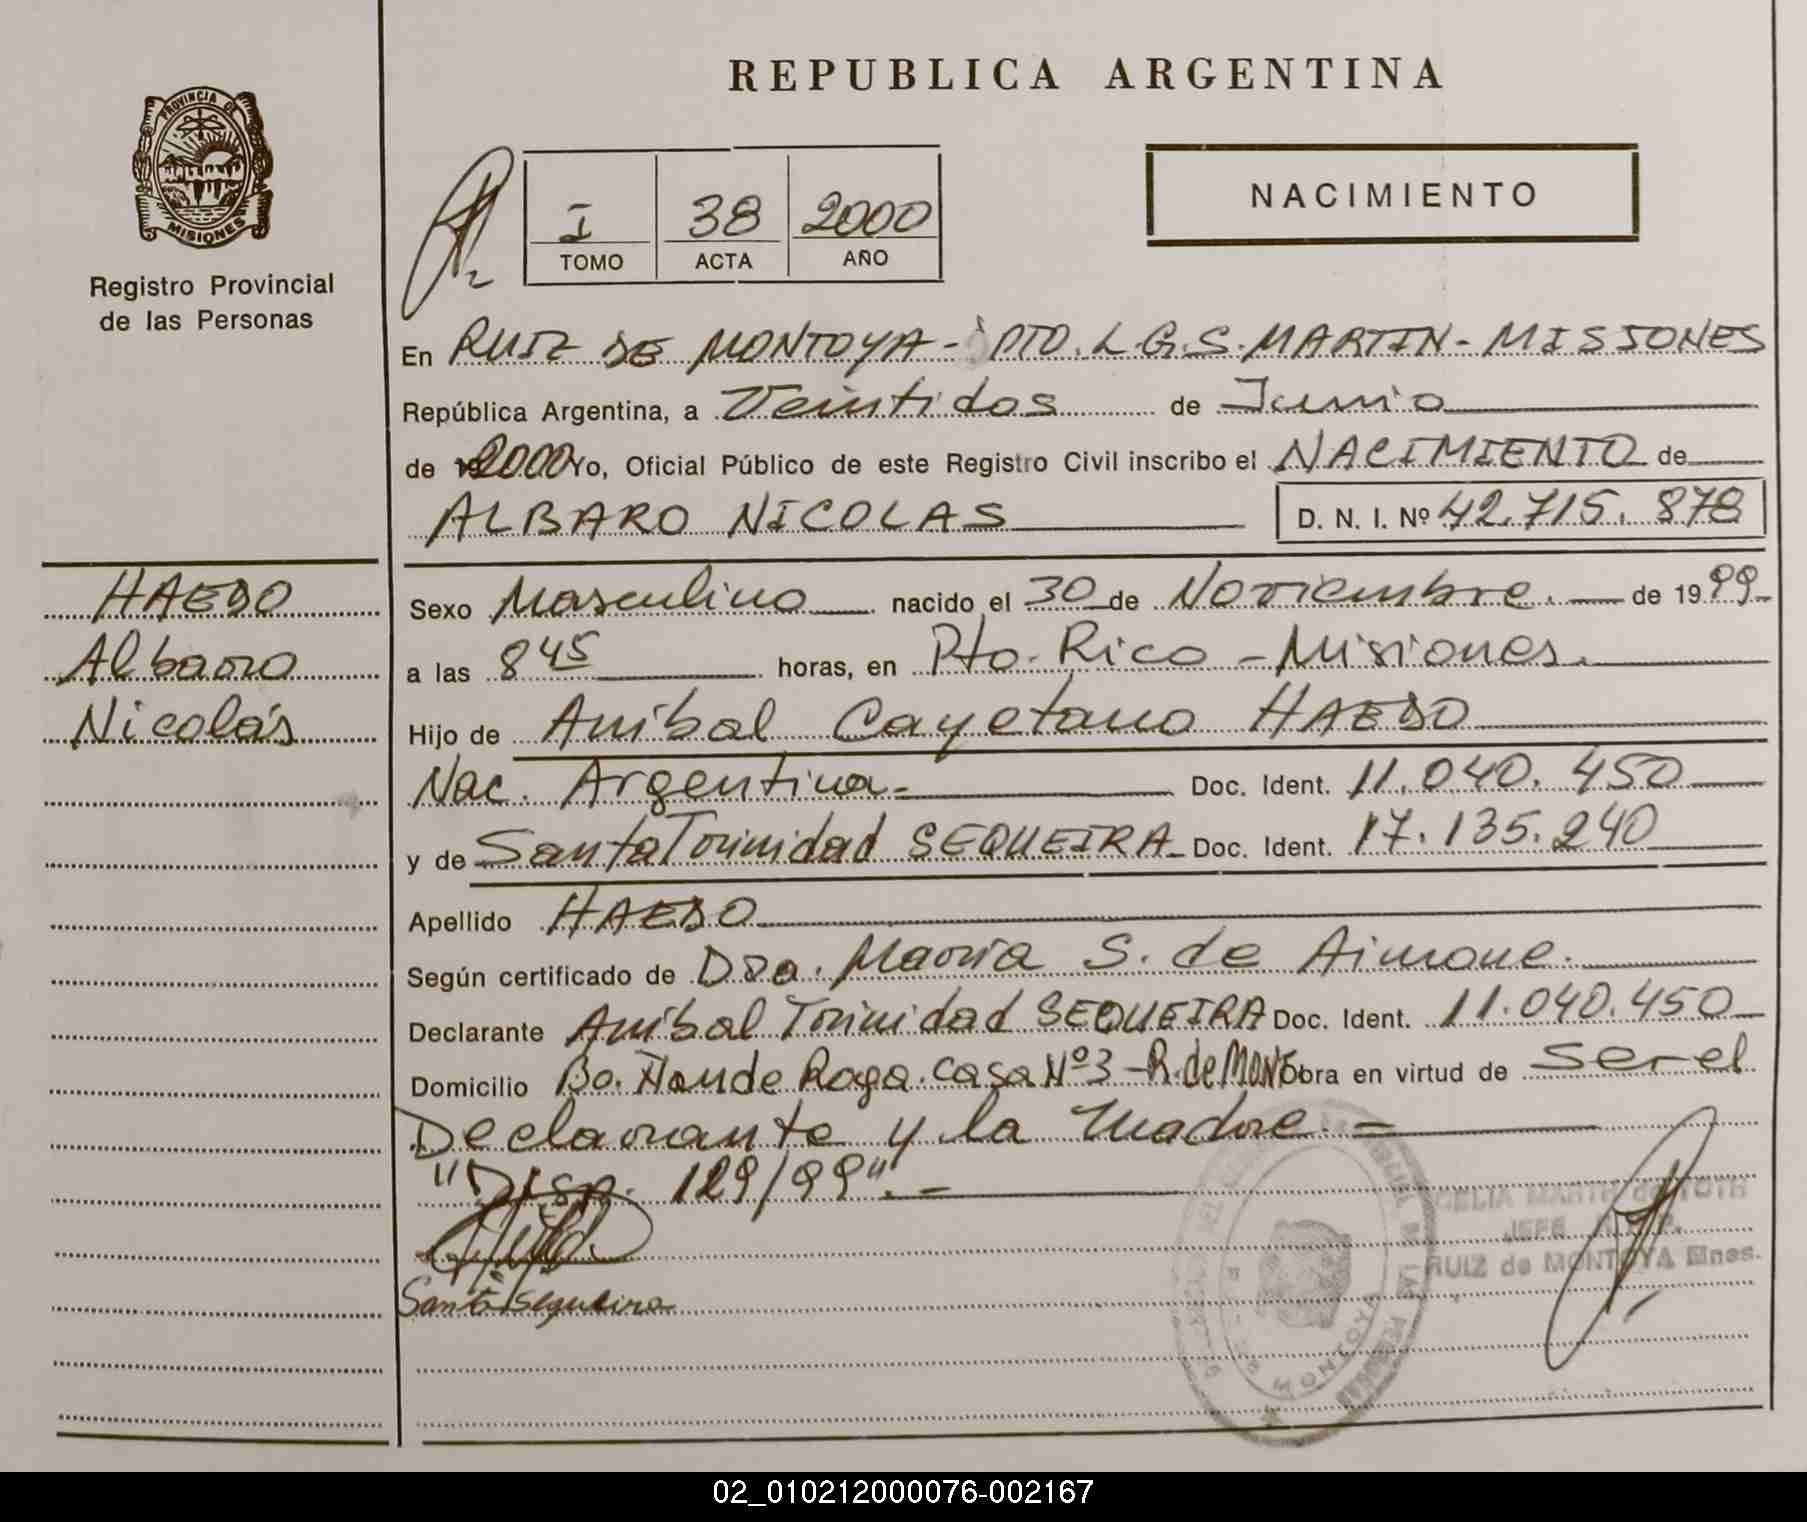 REPUBLICA ARGENTINA
PROVINCIA DE
MISIONES
Registro Provincial
de las Personas
I 38 2000
TOMO ACTA AÑO
NACIMIENTO
En RUIZ DE MONTOYA - DTO. L.G.S. MARTIN - MISIONES
República Argentina, a Veintidos de Junio
de 2000 Yo, Oficial Público de este Registro Civil inscribo el NACIMIENTO de
ALBARO NICOLAS D. N. I. Nº 42.715.878
HAEDO
Albaro
Nicolás
Sexo Masculino nacido el 30 de Noviembre. de 1999
a las 8 45 horas, en Pto. Rico - Misiones.
Hijo de Anibal Cayetano HAEDO
Nac. Argentina.- Doc. Ident. 11.040.450
y de Santa Trinidad SEQUEIRA Doc. Ident. 17.135.240
Apellido HAEDO
Según certificado de Dra. Maria S. de Aimone.
Declarante Anibal Trinidad SEQUEIRA Doc. Ident. 11.040.450
Domicilio Bo. Ñande Roga. Casa Nº 3 - R. de MONT obra en virtud de ser el
Declarante y la madre. =
"Disp. 129/99". -
Santa Sequeira
CELIA MARTA de TOTH
JEFE
RUIZ de MONTOYA Mnes.
MONTOYA
02_010212000076-002167